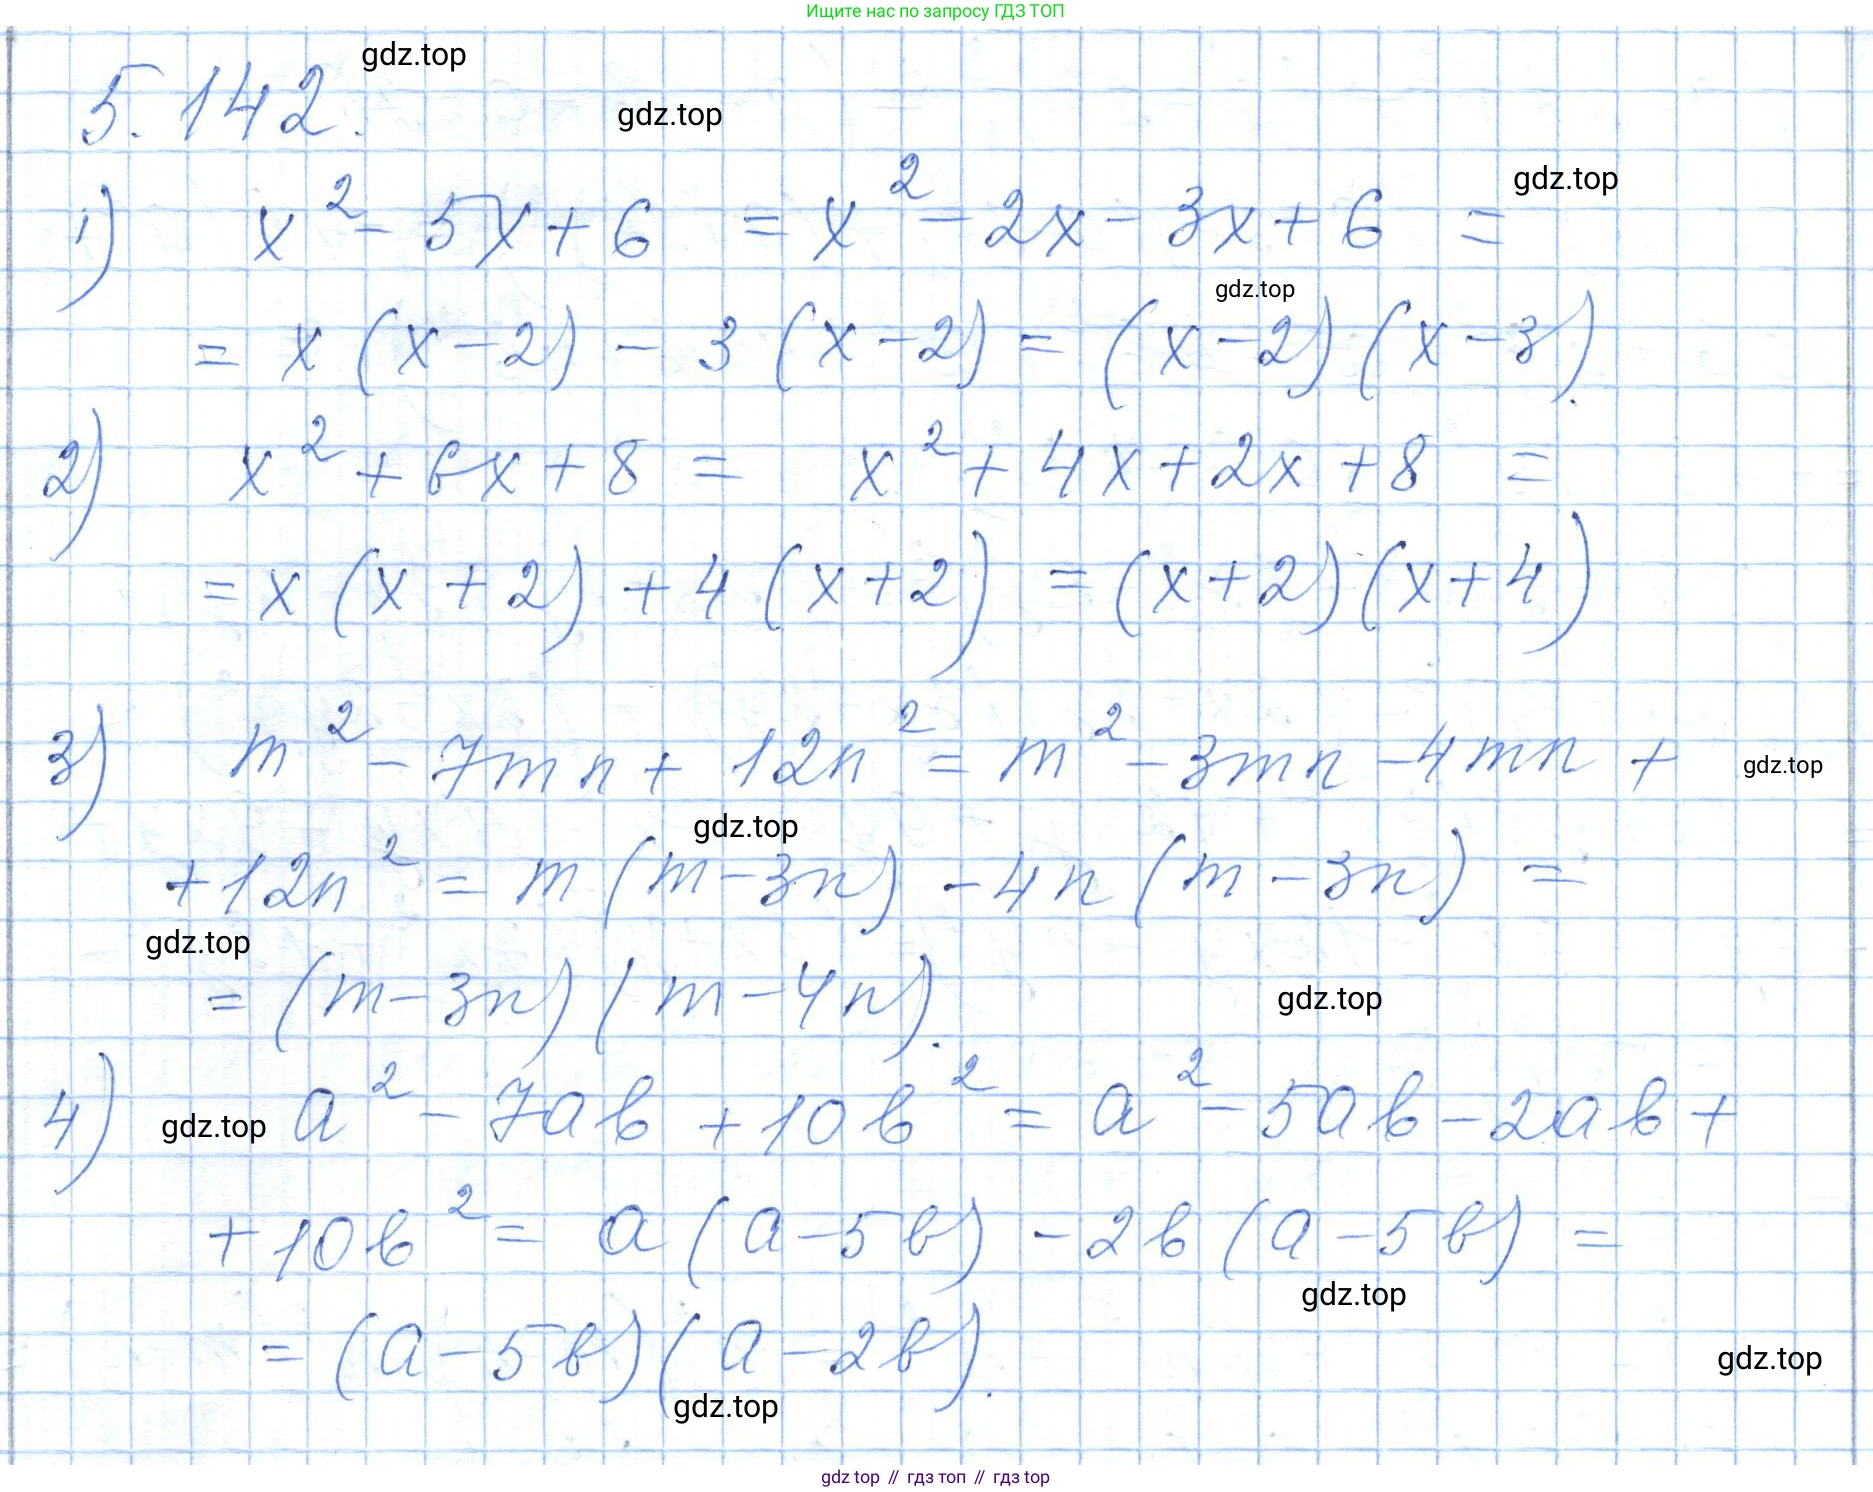 Ищите нас по запросу ГДЗ ТОП
gdz.top
5.142.
gdz.top
gdz.top
1) x² - 5x + 6 = x² - 2x - 3x + 6 =
gdz.top
= x (x - 2) - 3 (x - 2) = (x - 2) (x - 3).
2) x² + 6x + 8 = x² + 4x + 2x + 8 =
= x (x + 2) + 4 (x + 2) = (x + 2) (x + 4)
3) m² - 7mn + 12n² = m² - 3mn - 4mn +
gdz.top
gdz.top
+ 12n² = m (m - 3n) - 4n (m - 3n) =
gdz.top
= (m - 3n) (m - 4n).
gdz.top
4) a² - 7ab + 10b² = a² - 5ab - 2ab +
gdz.top
+ 10b² = a (a - 5b) - 2b (a - 5b) =
gdz.top
= (a - 5b) (a - 2b).
gdz.top
gdz.top
gdz top // гдз топ // гдз top